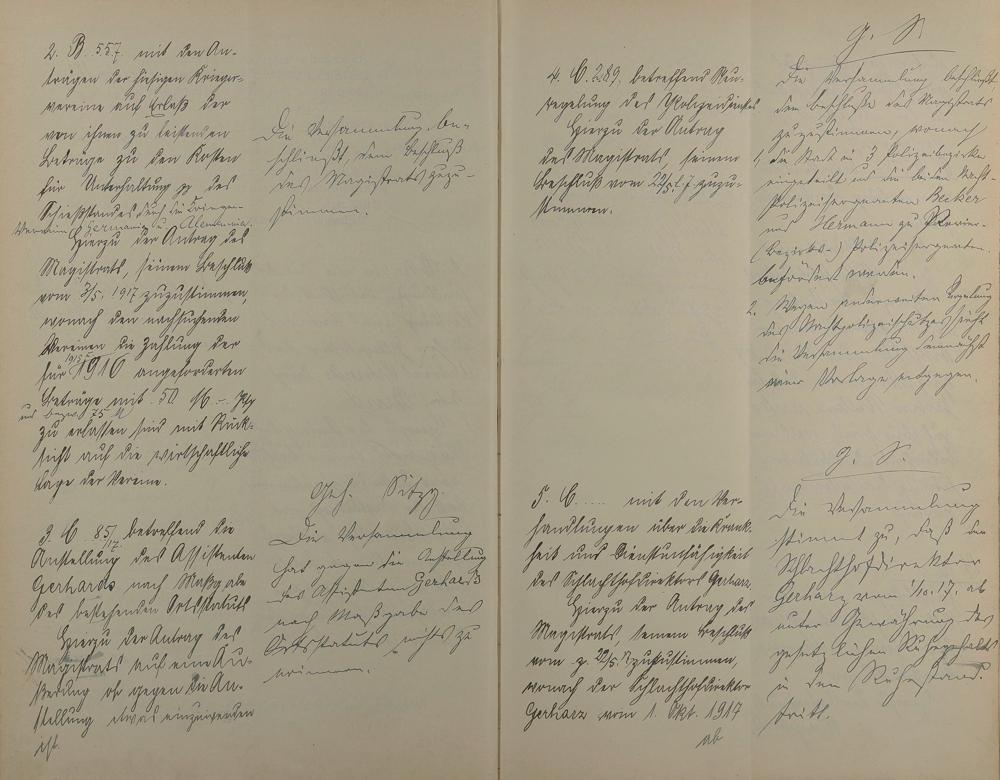 2. B. 557. mit den An-
trägen der hiesigen Krieger-
vereine auf Erlaß der
von ihnen zu leistenden
Beträge zu den Kosten
für Unterhaltung pp des
Schießstandes durch die Krieger-
Vereine Germania u. Alemannia.
Hierzu der Antrag des
Magistrats, seinem Beschluß
vom 3/5. 1917 zuzustimmen,
wonach den nachsuchenden
Vereinen die Zahlung der
für 1915 u. 1916 angeforderten
Beträge mit 50 M – Pfg
und bezw. 75 M
zu erlassen sind mit Rück-
sicht auf die wirtschaftliche
Lage der Vereine.
Die Versammlung be-
schließt, dem Beschluß
des Magistrats zuzu-
stimmen.
3. C. 85/17. betreffend die
Anstellung des Assistenten
Gerhards nach Maßgabe
des bestehenden Ortsstatuts
Hierzu der Antrag des
Magistrats auf eine Äu-
ßerung ob gegen die An-
stellung etwas einzuwenden
ist.
Geh. Sitzg.
Die Versammlung
hat gegen die Anstellung
des Assistenten Gerhards
nach Maßgabe des
Ortsstatuts nichts zu
erinnern.
4. C. 289, betreffend Neu-
regelung des Polizeidienstes
Hierzu der Antrag
des Magistrats, seinem
Beschluß vom 22/5. 17 zuzu-
stimmen.
G. S.
Die Versammlung beschließt
dem Beschlusse des Magistrats
zuzustimmen, wonach
1, die Stadt in 3 Polizeibezirke
eingeteilt und die beiden Nacht-
Polizeisergeanten Becker
und Hermann zu Revier-
(Bezirks-) Polizeisergeanten
befördert werden.
2. Wegen anderweiten Regelung
des Nachtpolizeischutzes sieht
die Versammlung zunächst
einer Vorlage entgegen.
5. C. .... mit den Ver-
handlungen über die Krank-
heit und Dienstunfähigkeit
des Schlachthofdirektors Gerharz,
Hierzu der Antrag des
Magistrats, seinem Beschluß
vom 22/5. zuzustimmen,
wonach der Schlachthofdirektor
Gerharz vom 1. Okt. 1917
ab
G. S.
Die Versammlung
stimmt zu, daß der
Schlachthofdirektor
Gerharz vom 1/10. 17. ab
unter Gewährung des
gesetzlichen Ruhegehalts
in den Ruhestand
tritt.